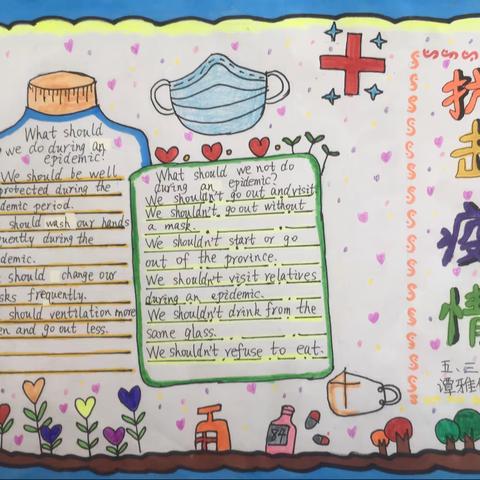 What should
we do during an
epidemic?
We should be well
protected during the
demic period.
should wash our hands
quently during the
demic.
should change our
sks frequently.
should ventilation more
en and go out less.
What should we not do
during an epidemic?
We shouldn't go out and visit
We shouldn't go out without
a mask.
We shouldn't start or go
out of the province.
We shouldn't visit relatives
during an epidemic.
We shouldn't drink from the
same glass.
We shouldn't refuse to eat.
抗
击
疫
情
五.三
谭雅
84